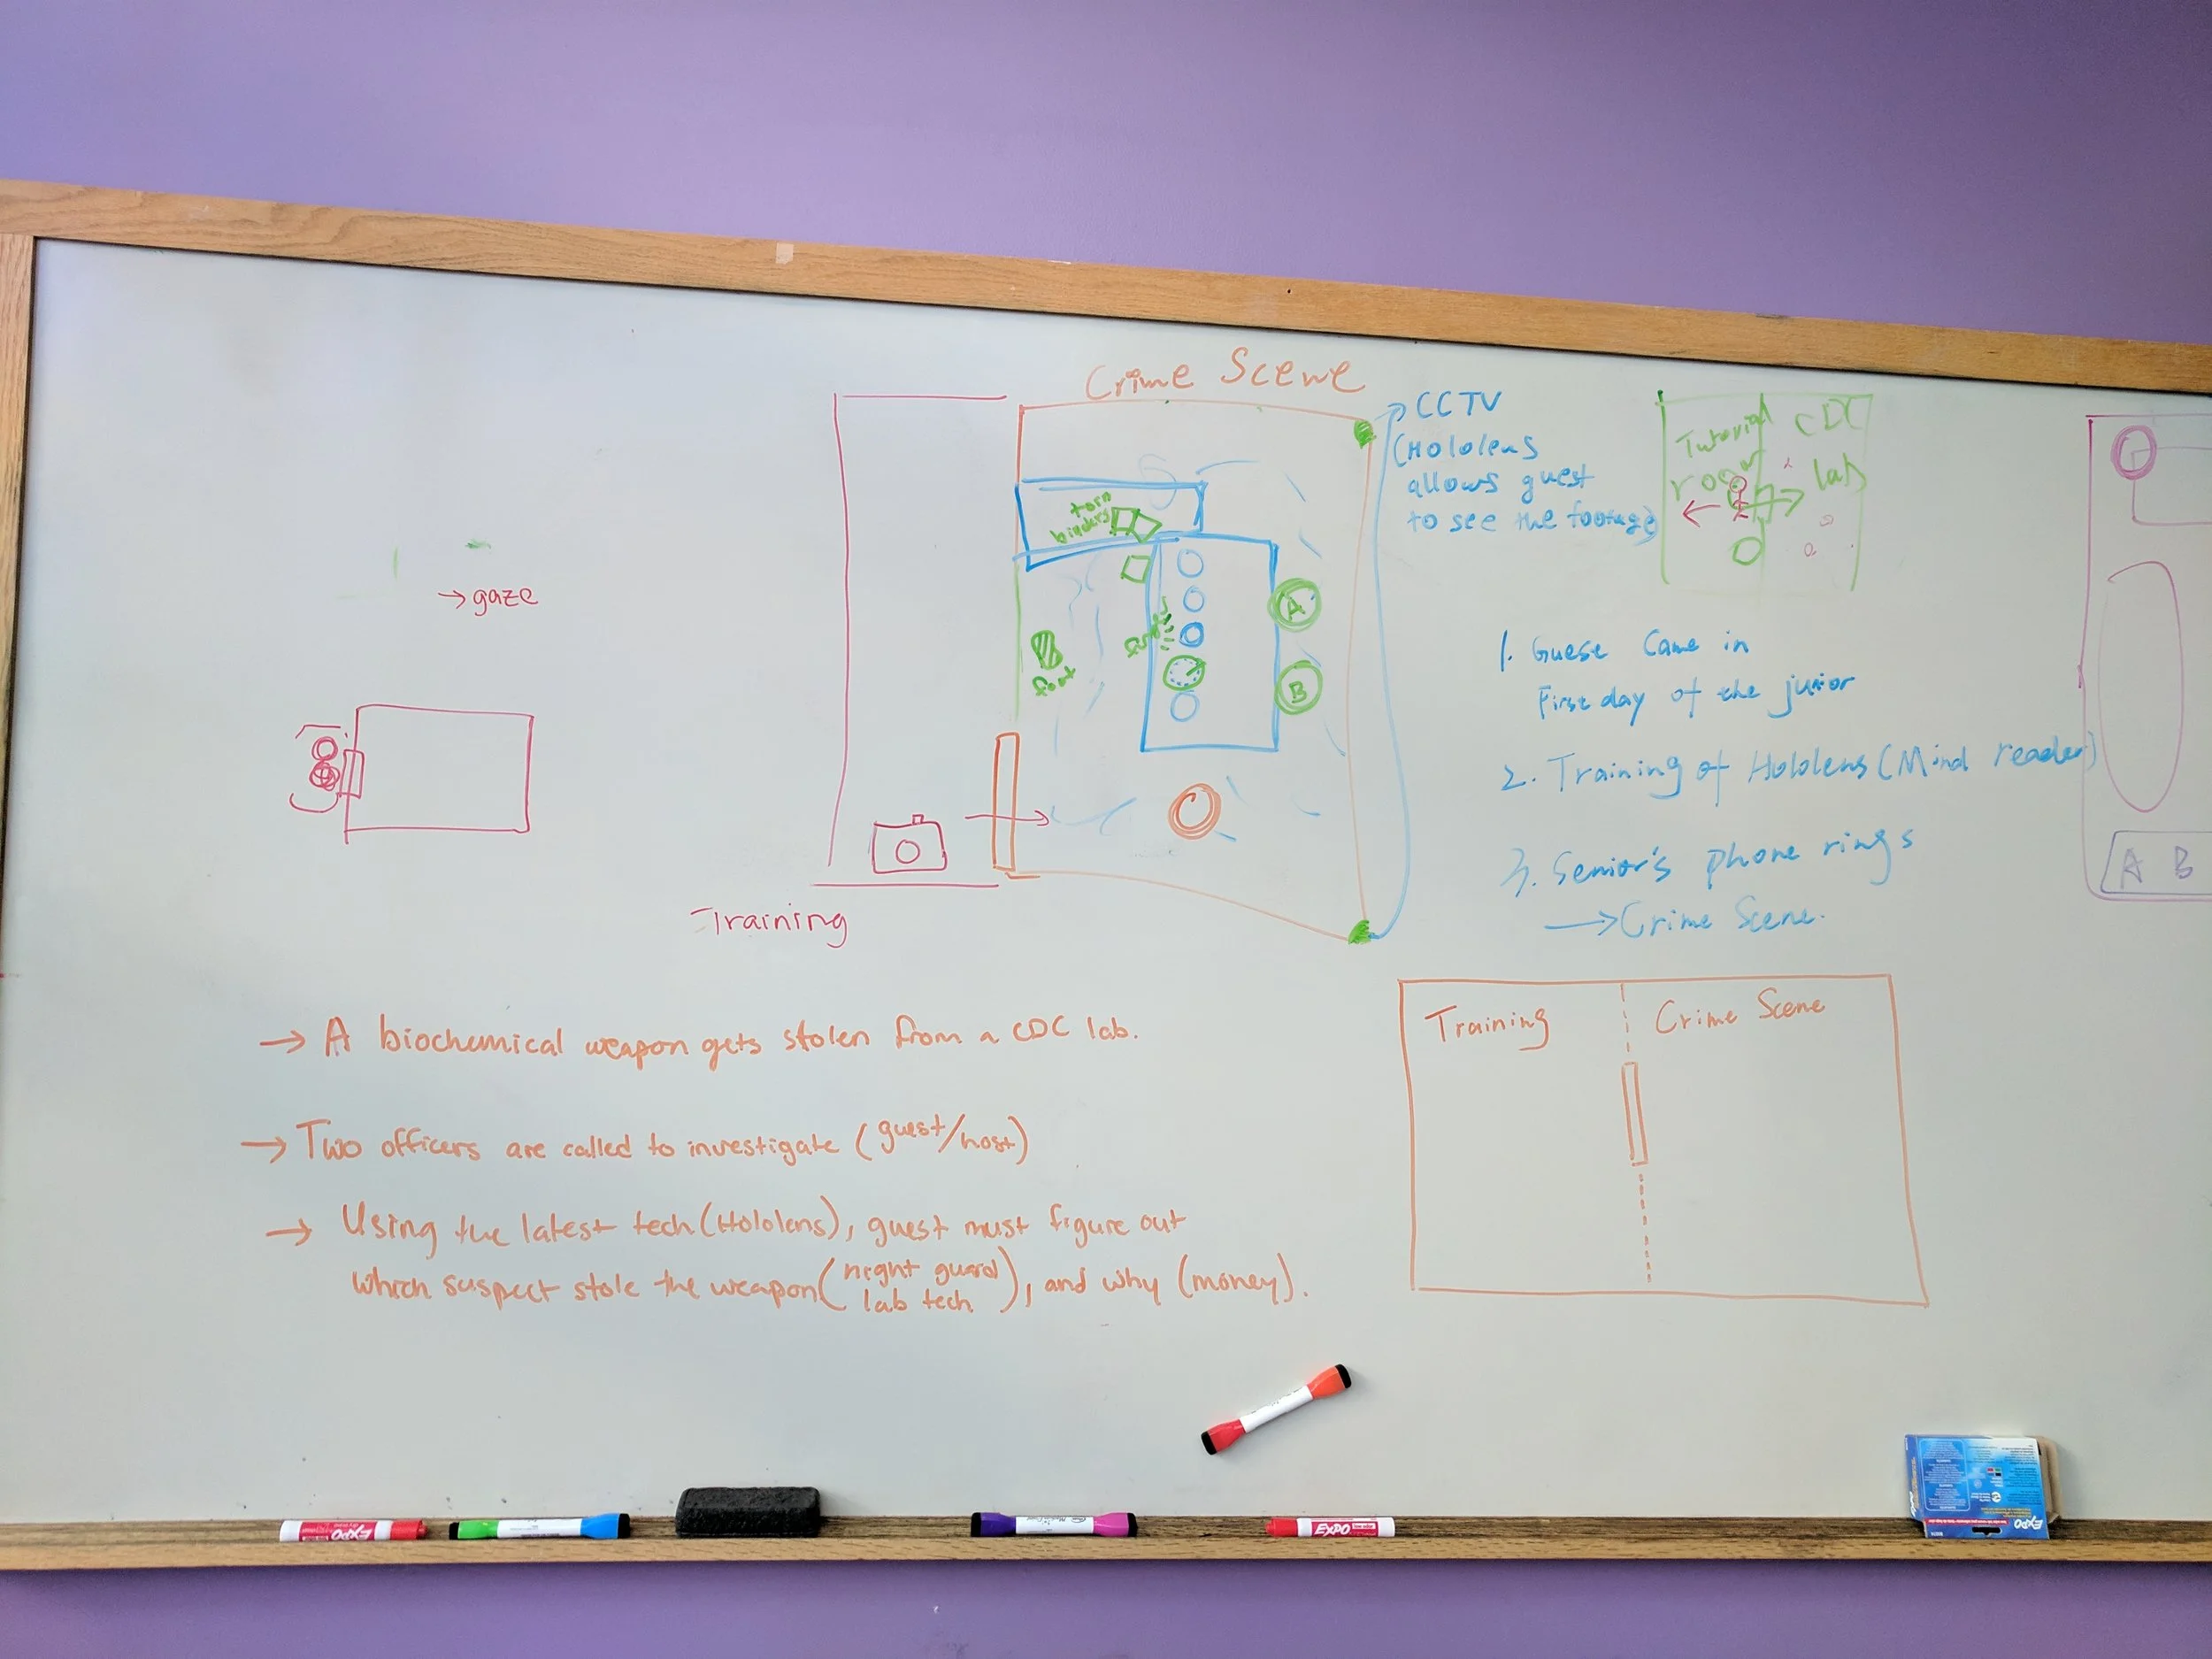 Crime Scene
CCTV
(Hololens
allows guest
to see the footage)
Tutorial
room
CDC
lab
torn
binders
A
B
foot
→ gaze
1. Guese Came in
First day of the junior
2. Training of Hololens (Mind reader)
3. Senior's phone rings
→ Crime Scene.
A B
Training
→ A biochemical weapon gets stolen from a CDC lab.
→ Two officers are called to investigate (guest/host)
→ Using the latest tech (Hololens), guest must figure out
which suspect stole the weapon (night guard
lab tech), and why (money).
Training
Crime Scene
EXPO
EXPO
EXPO